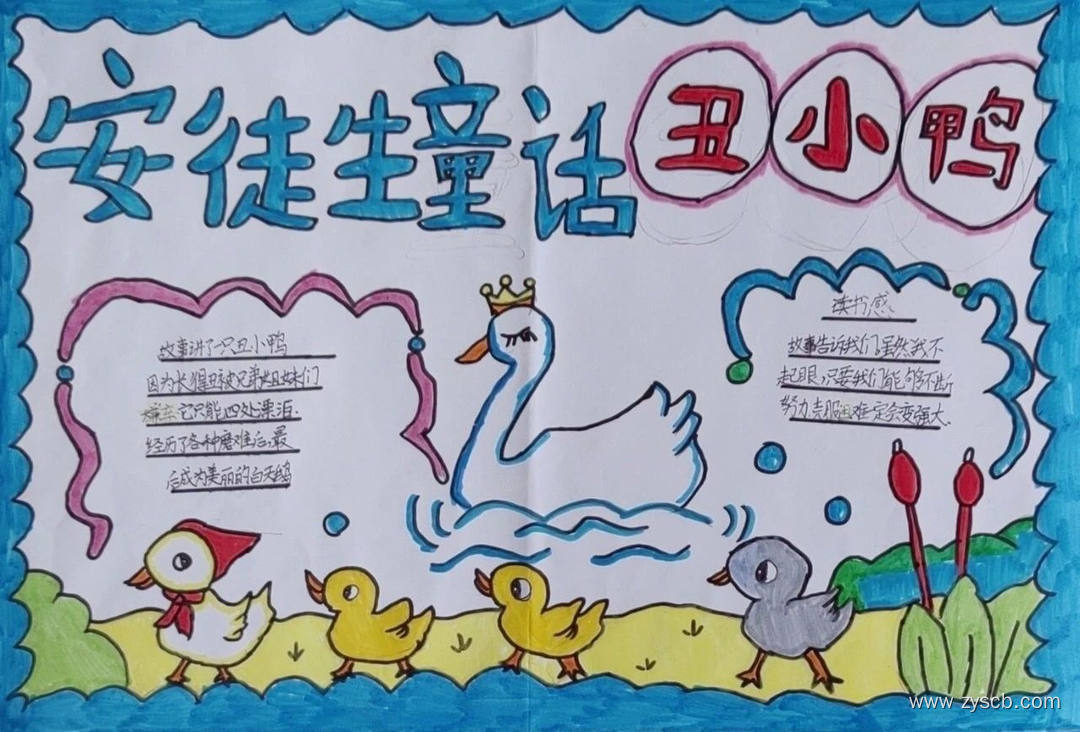 安徒生童话
丑小鸭
故事讲了一只丑小鸭
因为长得丑被兄弟姐妹们
嫌弃它只能四处漂泊.
经历了各种磨难后,最
后成为美丽的白天鹅
读书感
故事告诉我们,虽然我不
起眼,只要我们能够不断
努力克服困难定会变强大.
www.zyscb.com